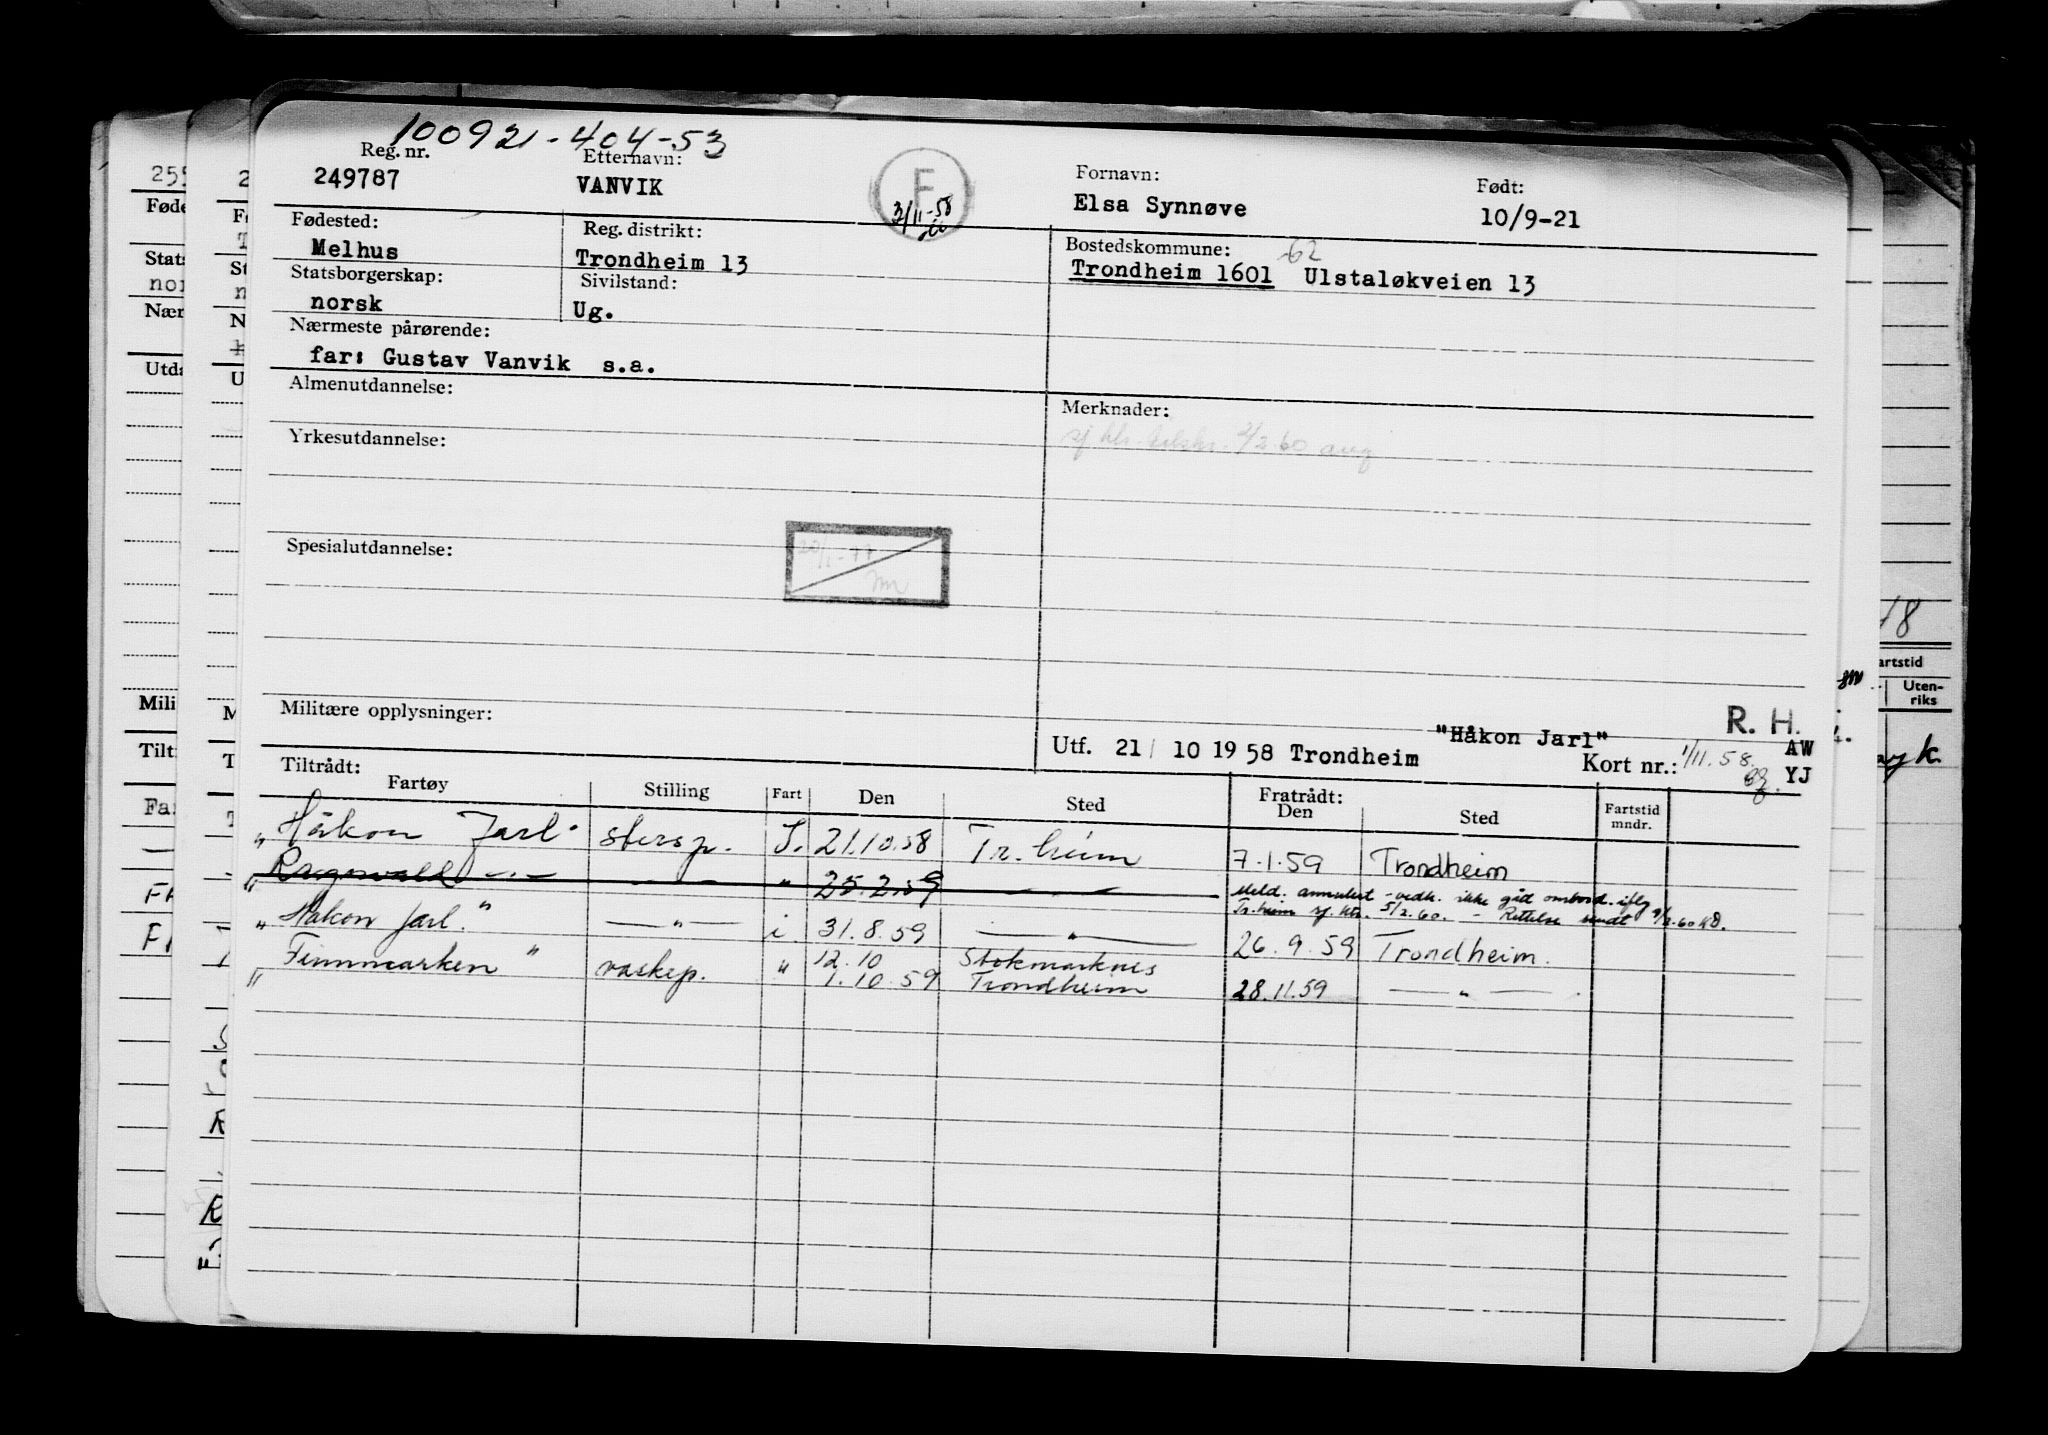 100921-404-53
Reg. nr. Etternavn: Fornavn: Født:
249787 VANVIK F Elsa Synnøve 10/9-21
3/11-58
Fødested: Reg. distrikt: Bostedskommune: -62
Melhus Trondheim 13 Trondheim 1601 Ulstaløkveien 13
Statsborgerskap: Sivilstand:
norsk Ug.
Nærmeste pårørende:
far: Gustav Vanvik s.a.
Almenutdannelse: Merknader:
2/2 60
Yrkesutdannelse:
Spesialutdannelse:
Militære opplysninger: R. H.
Utf. 21/10 1958 Trondheim "Håkon Jarl" AW
Kort nr.: 1/11.58. YJ
Tiltrådt: Fratrådt:
Fartøy Stilling Fart Den Sted Den Sted Fartstid mndr.
"Håkon Jarl" stersp. I. 21.10.58 Tr.heim 7.1.59 Trondheim
"Ragnvald — " — — " — " 25.2.59 — " —
Meld. annulert - vedk. ikke gått ombord. iflg
Tr.heim sj.ktr. 5/2.60. - Rettelse sendt 9/2.60 KB.
"Håkon Jarl." — " — i 31.8.59 — " — 26.9.59 Trondheim.
"Finnmarken" vaskep. " 12.10 Stokmarknes
1.10.59 Trondheim 28.11.59 — " —